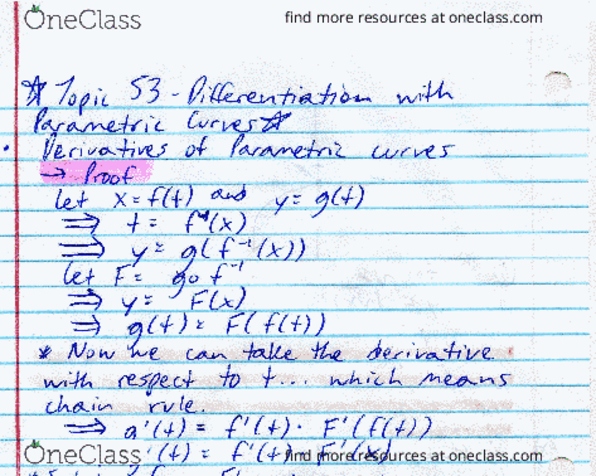 OneClass find more resources at oneclass.com
☆ Topic 53 - Differentiation with
Parametric Curves ☆
• Derivatives of Parametric curves
→ Proof
let x = f(t) and y = g(t)
⇒ t = f⁻¹(x)
⇒ y = g(f⁻¹(x))
let F = g∘f⁻¹
⇒ y = F(x)
⇒ g(t) = F(f(t))
* Now we can take the derivative
with respect to t... which means
chain rule.
⇒ g'(t) = f'(t) · F'(f(t))
OneClass '(t) = f'(t) F'(x) find more resources at oneclass.com